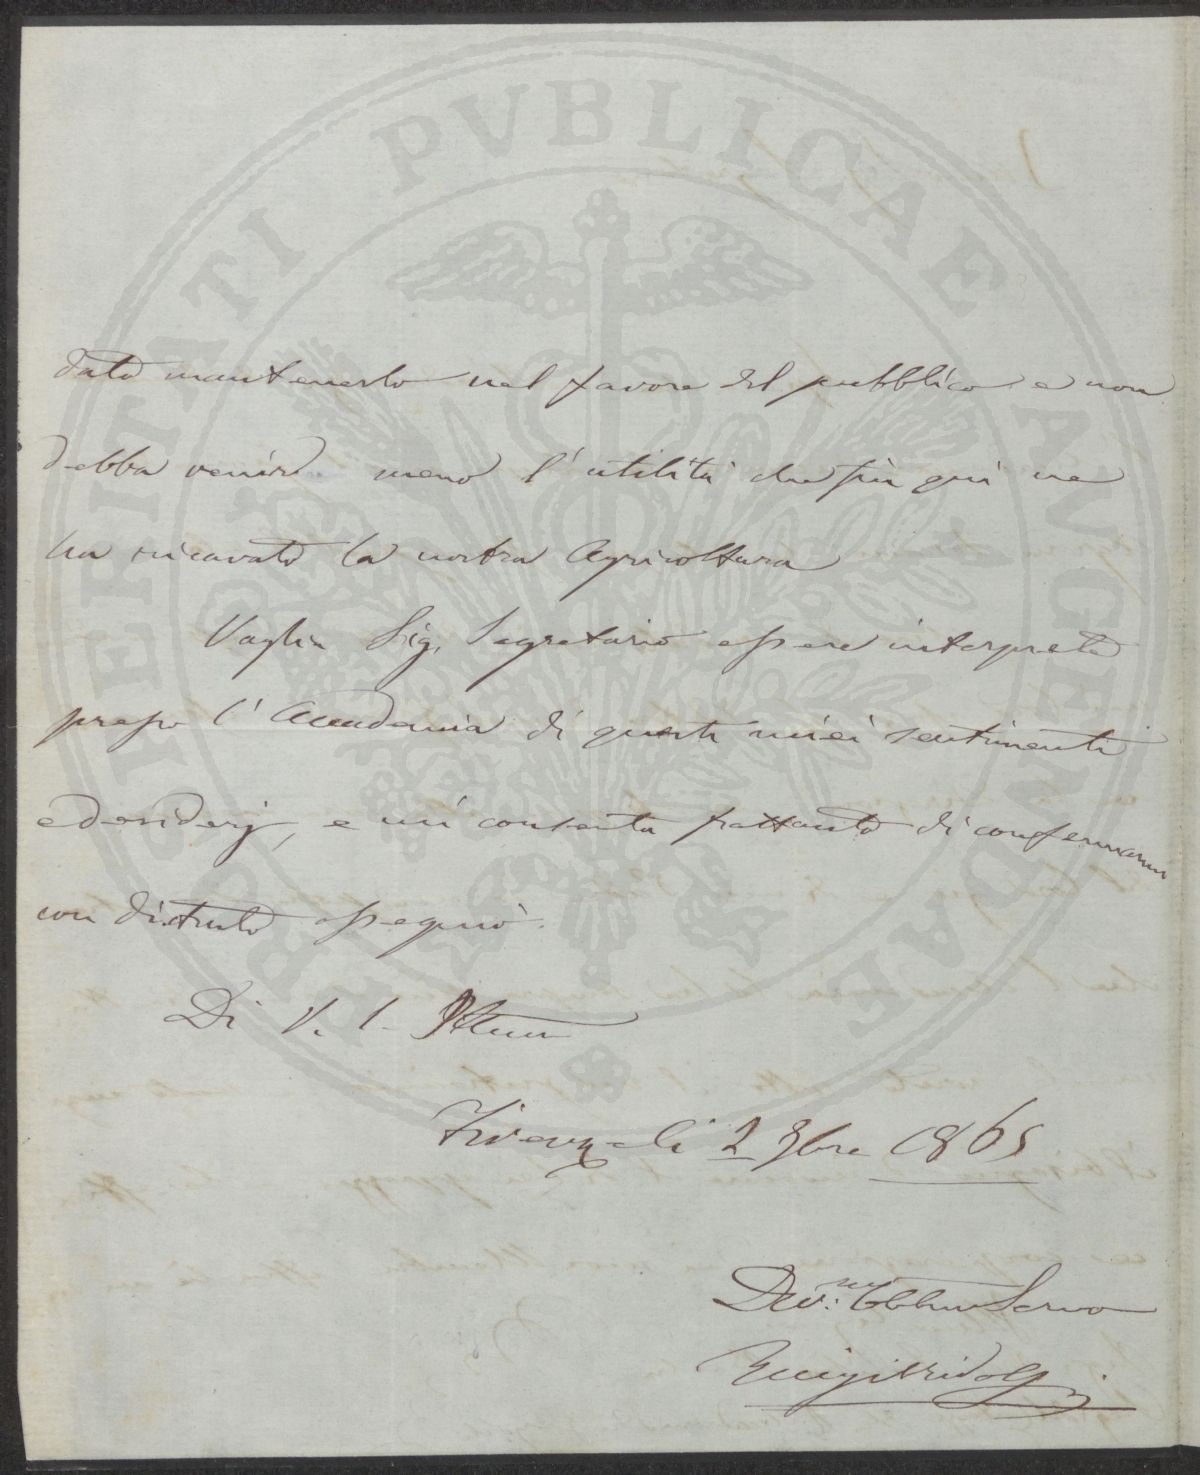 PROSPERITATI PVBLICAE AVGENDAE
dato mantenerlo nel favore del pubblico e non
debba venire meno l'utilità che fin qui ne
ha ricavato la nostra Agricoltura
Voglia Sig. Segretario essere interprete
presso l'Accademia di questi miei sentimenti
e desiderj, e mi consenta frattanto di confermarmi
con distinto ossequio.
Di V. S. Illma
Firenze li 2 9bre 1865
Dev.mo Obblmo Servo
Luigi Ridolfi